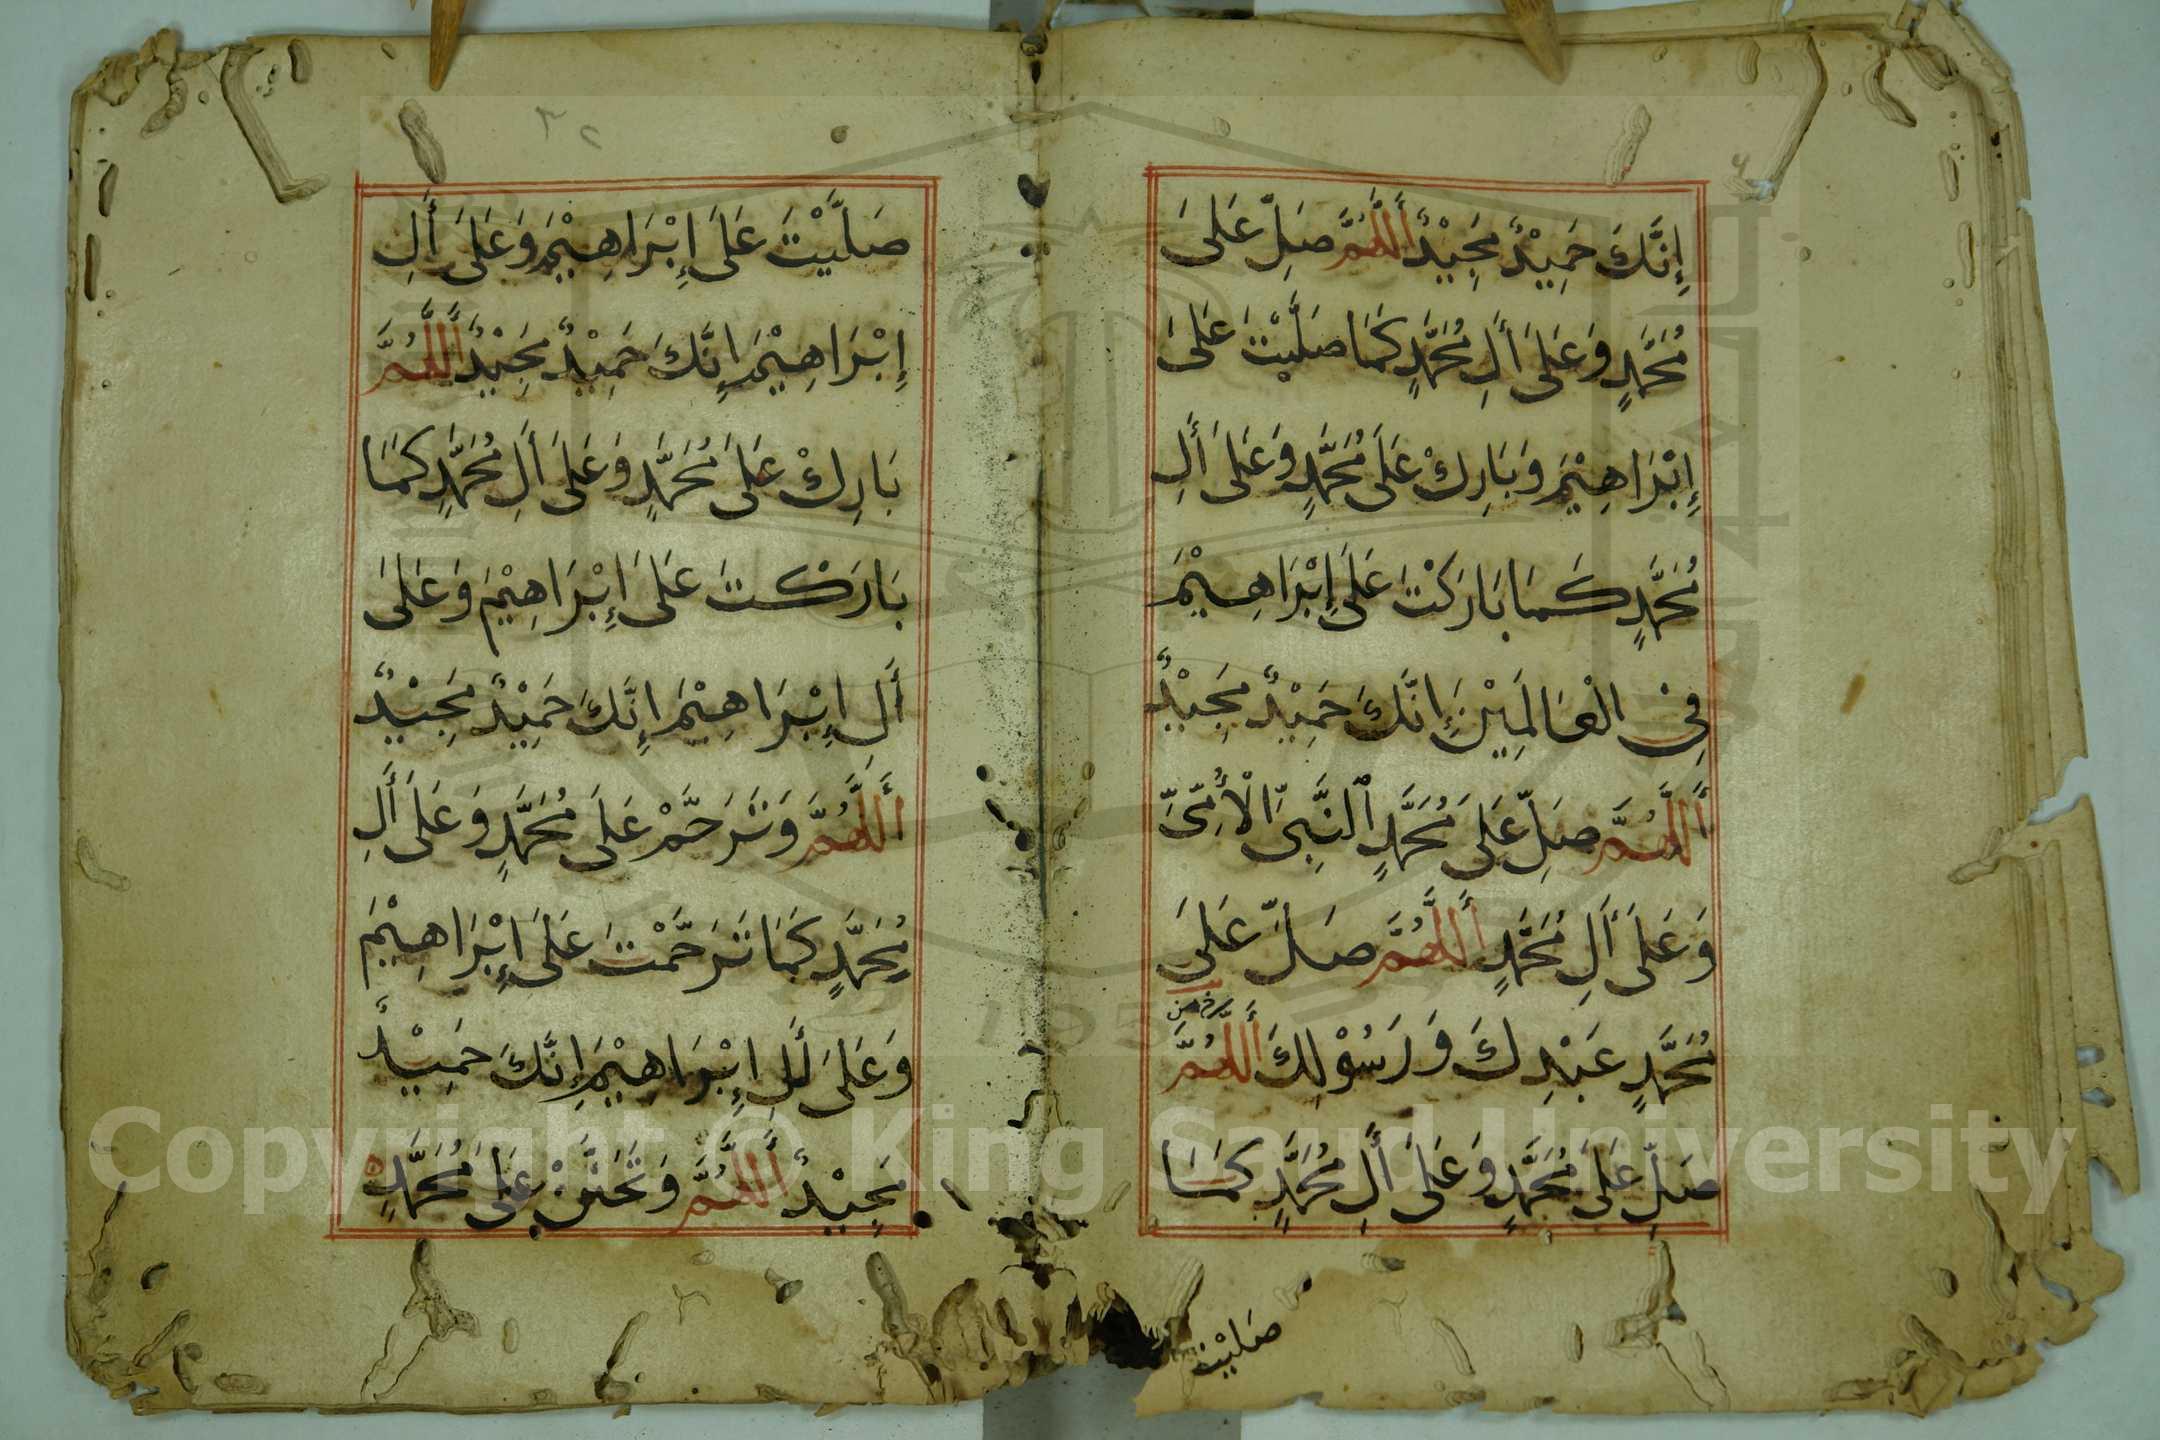 إِنَّكَ حَمِيْدٌ مَجِيْدٌ أَللَّهُمَّ صَلِّ عَلَى
مُحَمَّدٍ وَعَلَى أَلِ مُحَمَّدٍ كَمَا صَلَّيْتَ عَلَى
إِبْرَاهِيْمَ وَبَارِكْ عَلَى مُحَمَّدٍ وَعَلَى أَلِ
مُحَمَّدٍ كَمَا بَارَكْتَ عَلَى إِبْرَاهِيْمَ
فِي الْعَالَمِيْنَ إِنَّكَ حَمِيْدٌ مَجِيْدٌ
أَللَّهُمَّ صَلِّ عَلَى مُحَمَّدٍ النَّبِيِّ الْأُمِّيِّ
وَعَلَى أَلِ مُحَمَّدٍ أَللَّهُمَّ صَلِّ عَلَى
مُحَمَّدٍ عَبْدِكَ وَرَسُوْلِكَ أَللَّهُمَّ
صَلِّ عَلَى مُحَمَّدٍ وَعَلَى أَلِ مُحَمَّدٍ كَمَا
صليت
٣٢
صَلَّيْتَ عَلَى إِبْرَاهِيْمَ وَعَلَى أَلِ
إِبْرَاهِيْمَ إِنَّكَ حَمِيْدٌ مَجِيْدٌ أَللَّهُمَّ
بَارِكْ عَلَى مُحَمَّدٍ وَعَلَى أَلِ مُحَمَّدٍ كَمَا
بَارَكْتَ عَلَى إِبْرَاهِيْمَ وَعَلَى
أَلِ إِبْرَاهِيْمَ إِنَّكَ حَمِيْدٌ مَجِيْدٌ
أَللَّهُمَّ وَتَرَحَّمْ عَلَى مُحَمَّدٍ وَعَلَى أَلِ
مُحَمَّدٍ كَمَا تَرَحَّمْتَ عَلَى إِبْرَاهِيْمَ
وَعَلَى أَلِ إِبْرَاهِيْمَ إِنَّكَ حَمِيْدٌ
مَجِيْدٌ أَللَّهُمَّ وَتَحَنَّنْ عَلَى مُحَمَّدٍ
Copyright © King Saud University